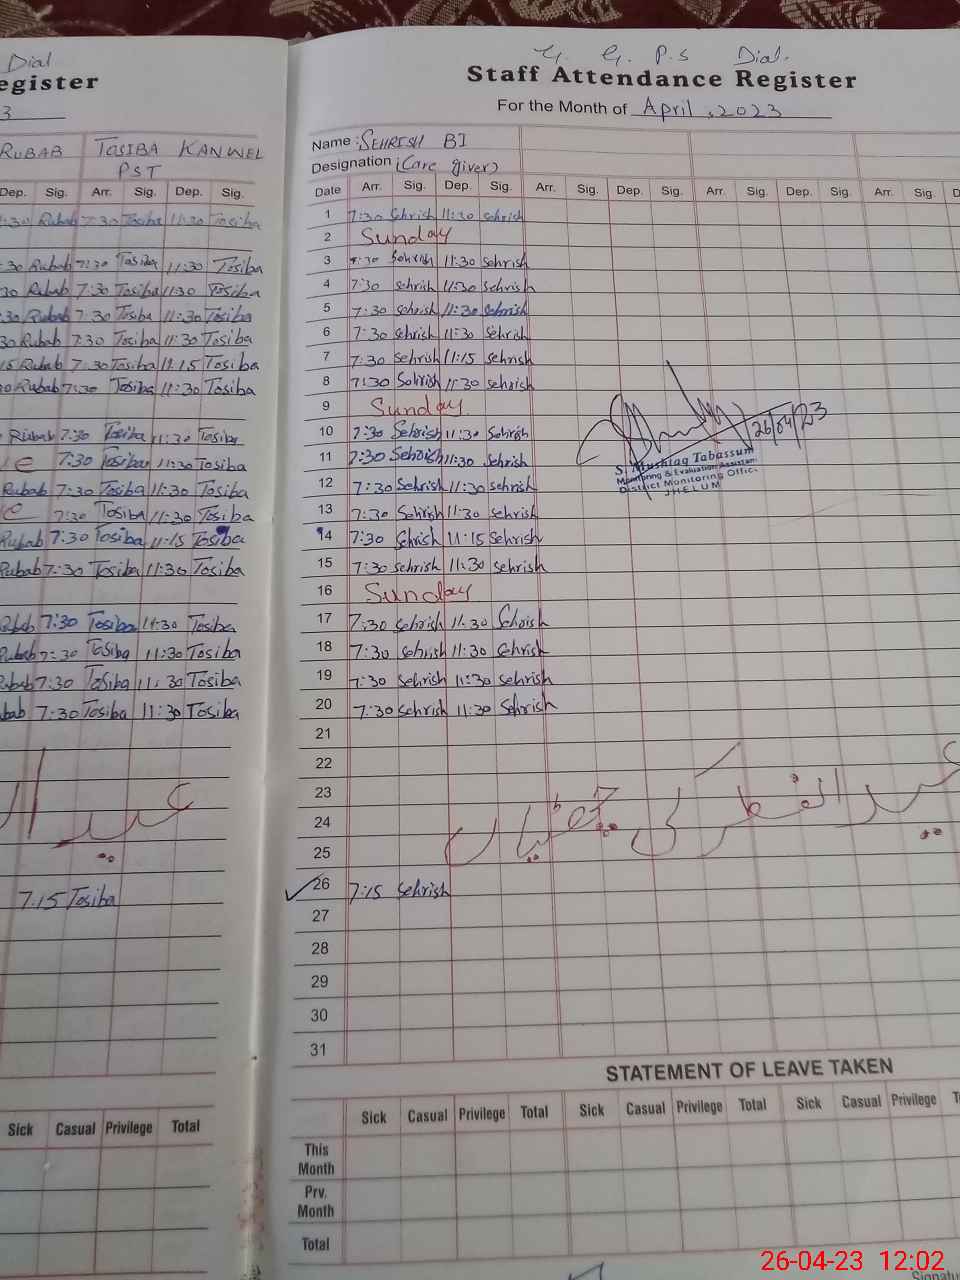 Dial
egister
3
RUBAB TOSIBA KANWEL
PST
Dep. Sig. Arr. Sig. Dep. Sig.
:30 Rubab 7:30 Tosiba 11:30 Tosiba
:30 Rubab 7:30 Tosiba 11:30 Tosiba
30 Rubab 7:30 Tosiba 11:30 Tosiba
:30 Rubab 7:30 Tosiba 11:30 Tosiba
30 Rubab 7:30 Tosiba 11:30 Tosiba
15 Rubab 7:30 Tosiba 11.15 Tosiba
Rubab 7:30 Tosiba 11:30 Tosiba
Rubab 7:30 Tosiba 11:30 Tosiba
e 7:30 Tosiba 11:30 Tosiba
Rubab 7:30 Tosiba 11:30 Tosiba
e 7:30 Tosiba 11:30 Tosiba
Rubab 7:30 Tosiba 11:15 Tosiba
Rubab 7:30 Tosiba 11:30 Tosiba
Rubab 7:30 Tosiba 11:30 Tosiba
Rubab 7:30 Tosiba 11:30 Tosiba
Rubab 7:30 Tosiba 11:30 Tosiba
bab 7:30 Tosiba 11:30 Tosiba
عید ال
7.15 Tosiba
Sick Casual Privilege Total
G. G. P.S Dial.
Staff Attendance Register
For the Month of April, 2023
Name : SEHRISH BI
Designation (Care giver)
Date Arr. Sig. Dep. Sig. Arr. Sig. Dep. Sig. Arr. Sig. Dep. Sig. Arr. Sig. D
1 7:30 Sehrish 11:30 Sehrish
2 Sunday
3 7:30 Sehrish 11:30 Sehrish
4 7:30 Sehrish 11:30 Sehrish
5 7:30 Sehrish 11:30 Sehrish
6 7:30 Sehrish 11:30 Sehrish
7 7:30 Sehrish 11:15 Sehrish
8 7:30 Sehrish 11:30 Sehrish
9 Sunday
10 7:30 Sehrish 11:30 Sehrish
11 7:30 Sehrish 11:30 Sehrish
12 7:30 Sehrish 11:30 Sehrish
13 7:30 Sehrish 11:30 Sehrish
14 7:30 Sehrish 11:15 Sehrish
15 7:30 Sehrish 11:30 Sehrish
16 Sunday
17 7:30 Sehrish 11:30 Sehrish
18 7:30 Sehrish 11:30 Sehrish
19 7:30 Sehrish 11:30 Sehrish
20 7:30 Sehrish 11:30 Sehrish
26/04/23
S. Mushtaq Tabassum
Monitoring & Evaluation Assistant
District Monitoring Office
JHELUM
21
22
23
24
عید الفطر کی چھٹیاں
25
26 7:15 Sehrish
27
28
29
30
31
STATEMENT OF LEAVE TAKEN
Sick Casual Privilege Total Sick Casual Privilege Total Sick Casual Privilege T
This Month
Prv. Month
Total
26-04-23 12:02
Signatu